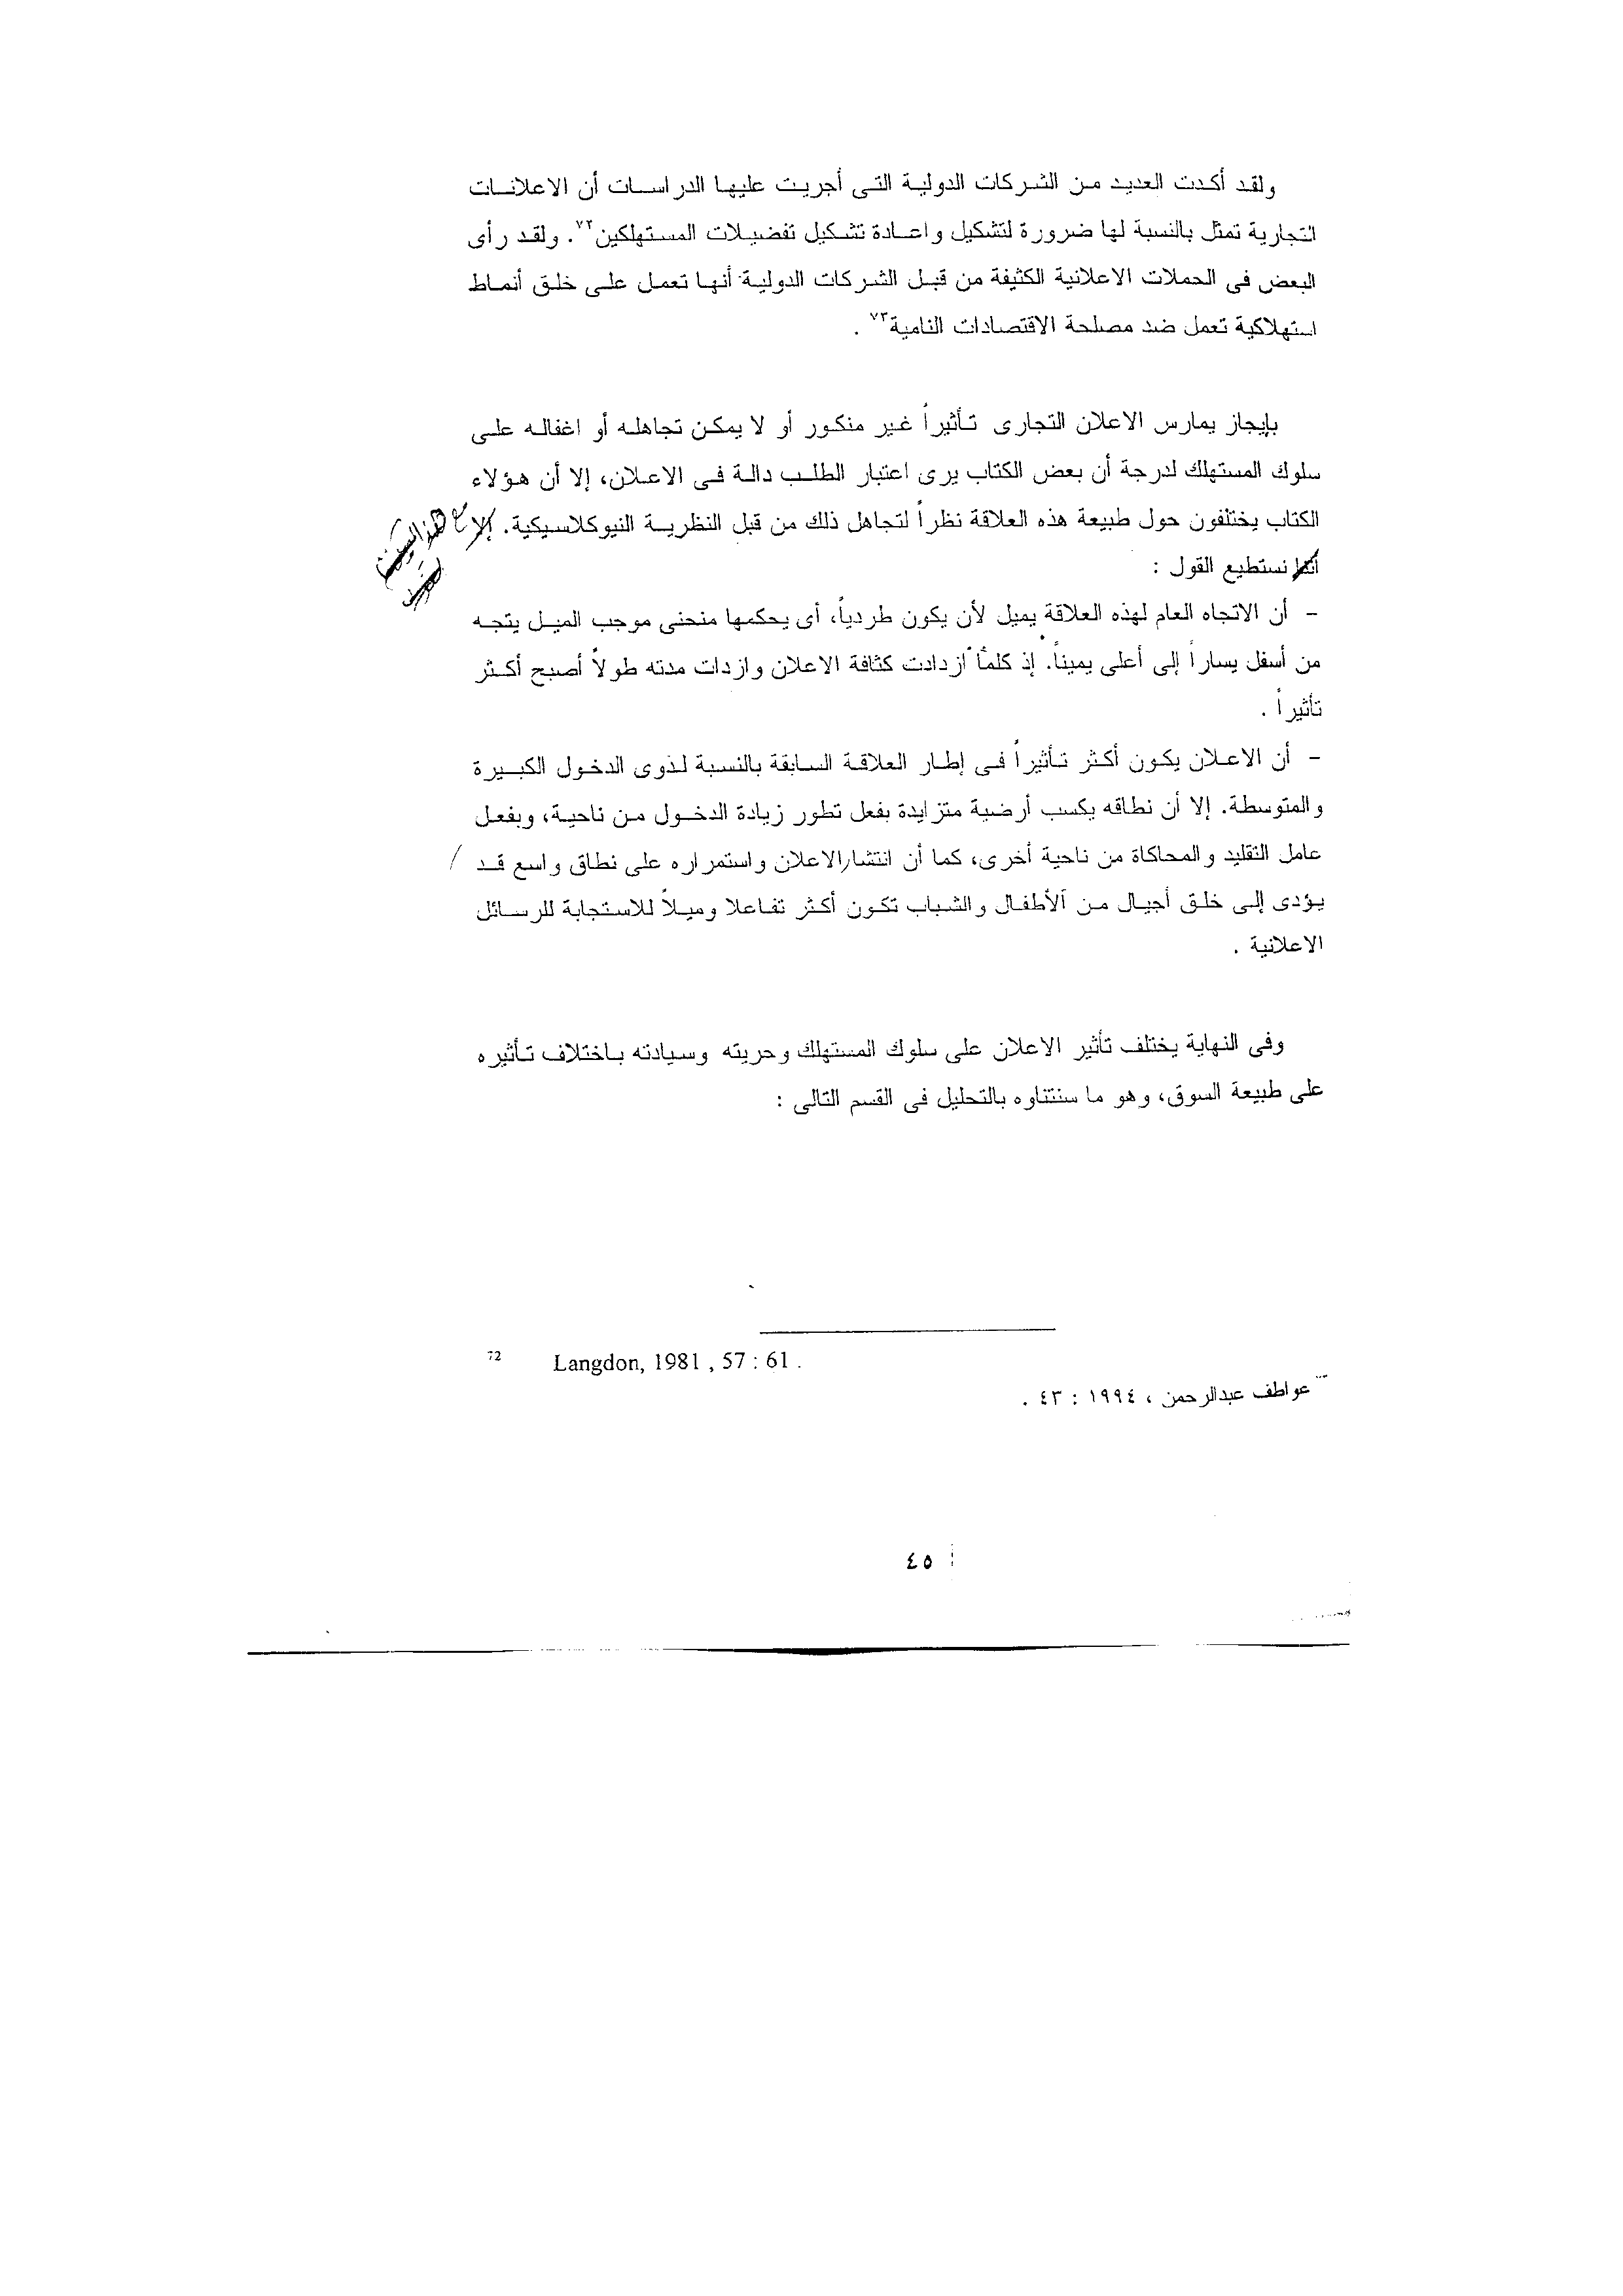 ولقد أكدت العديد من الشركات الدولية التى أجريت عليها الدراسات أن الاعلانات
التجارية تمثل بالنسبة لها ضرورة لتشكيل واعادة تشكيل تفضيلات المستهلكين٧٢. ولقد رأى
البعض فى الحملات الاعلانية الكثيفة من قبل الشركات الدولية أنها تعمل على خلق أنماط
استهلاكية تعمل ضد مصلحة الاقتصادات النامية٧٣ .
بإيجاز يمارس الاعلان التجارى تأثيراً غير منكور أو لا يمكن تجاهله أو اغفاله على
سلوك المستهلك لدرجة أن بعض الكتاب يرى اعتبار الطلب دالة فى الاعلان، إلا أن هؤلاء
الكتاب يختلفون حول طبيعة هذه العلاقة نظراً لتجاهل ذلك من قبل النظرية النيوكلاسيكية. إلا
نستطيع القول :
- أن الاتجاه العام لهذه العلاقة يميل لأن يكون طردياً، أى يحكمها منحنى موجب الميل يتجه
من أسفل يساراً إلى أعلى يميناً. إذ كلما ازدادت كثافة الاعلان وازدات مدته طولاً أصبح أكثر
تأثيراً .
- أن الاعلان يكون أكثر تأثيراً فى إطار العلاقة السابقة بالنسبة لذوى الدخول الكبيرة
والمتوسطة. إلا أن نطاقه يكسب أرضية متزايدة بفعل تطور زيادة الدخول من ناحية، وبفعل
عامل التقليد والمحاكاة من ناحية أخرى، كما أن انتشار الاعلان واستمراره على نطاق واسع قد
يؤدى إلى خلق أجيال من الأطفال والشباب تكون أكثر تفاعلا وميلاً للاستجابة للرسائل
الاعلانية .
وفى النهاية يختلف تأثير الاعلان على سلوك المستهلك وحريته وسيادته باختلاف تأثيره
على طبيعة السوق، وهو ما سنتناوه بالتحليل فى القسم التالى :
72 Langdon, 1981 , 57 : 61 .
عواطف عبدالرحمن ، ١٩٩٤ : ٤٣ .
٤٥